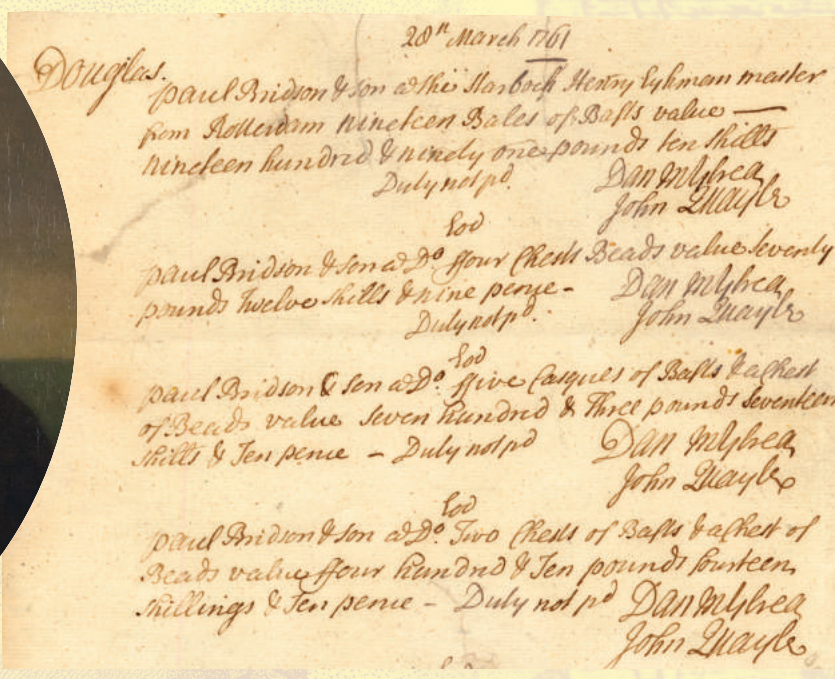 28th March 1761
Douglas.
Paul Bridson & Son a the Starbock Henry Eykman master
from Rotterdam Nineteen Bales of Bafts value —
Nineteen hundred & ninety one pounds ten shills
Duty not pd. Dan Mylrea
John Quayle
Eod
Paul Bridson & Son a Do. ffour Chests Beads value Seventy
pounds Twelve shills & nine pence - Dan Mylrea
Duty not pd. John Quayle
Eod
Paul Bridson & Son a Do. ffive Casques of Bafts & a Chest
of Beads value Seven hundred & Three pounds Seventeen
shills & Ten pence - Duty not pd Dan Mylrea
John Quayle
Eod
Paul Bridson & Son a Do. Two Chests of Bafts & a Chest of
Beads value ffour hundred & Ten pounds fourteen
shillings & Ten pence - Duty not pd Dan Mylrea
John Quayle